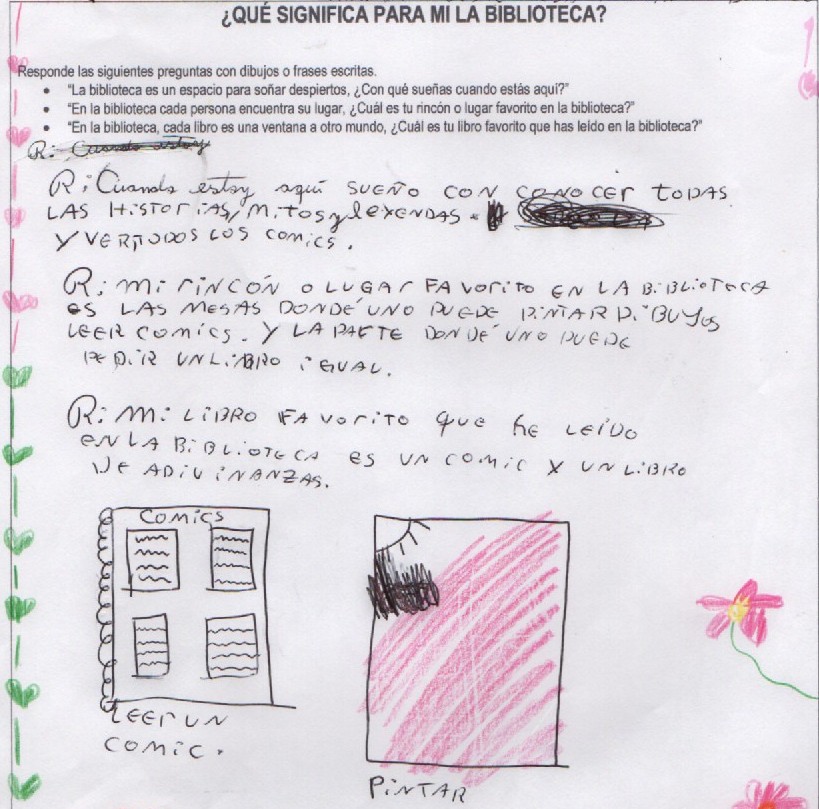 ¿QUÉ SIGNIFICA PARA MI LA BIBLIOTECA?
Responde las siguientes preguntas con dibujos o frases escritas.
• "La biblioteca es un espacio para soñar despiertos, ¿Con qué sueñas cuando estás aquí?"
• "En la biblioteca cada persona encuentra su lugar, ¿Cuál es tu rincón o lugar favorito en la biblioteca?"
• "En la biblioteca, cada libro es una ventana a otro mundo, ¿Cuál es tu libro favorito que has leído en la biblioteca?"
R: Cuando estoy
R: Cuando estoy aquí SUEÑO CON CONOCER TODAS
LAS HISTORIAS, MITOS y LEYENDAS.
Y VER TODOS LOS COMICS.
R: Mi RINCÓN O LUGAR FAVORITO EN LA BIBLIOTECA
ES LAS MESAS DONDE UNO PUEDE PINTAR DIBUJOS
LEER COMICS. Y LA PARTE DONDE UNO PUEDE
PEDIR UN LIBRO IGUAL.
R: Mi LIBRO FAVORITO QUE HE LEÍDO
EN LA BIBLIOTECA ES UN COMIC Y UN LIBRO
DE ADIVINANZAS.
COMICS
LEER UN
COMIC.
PINTAR